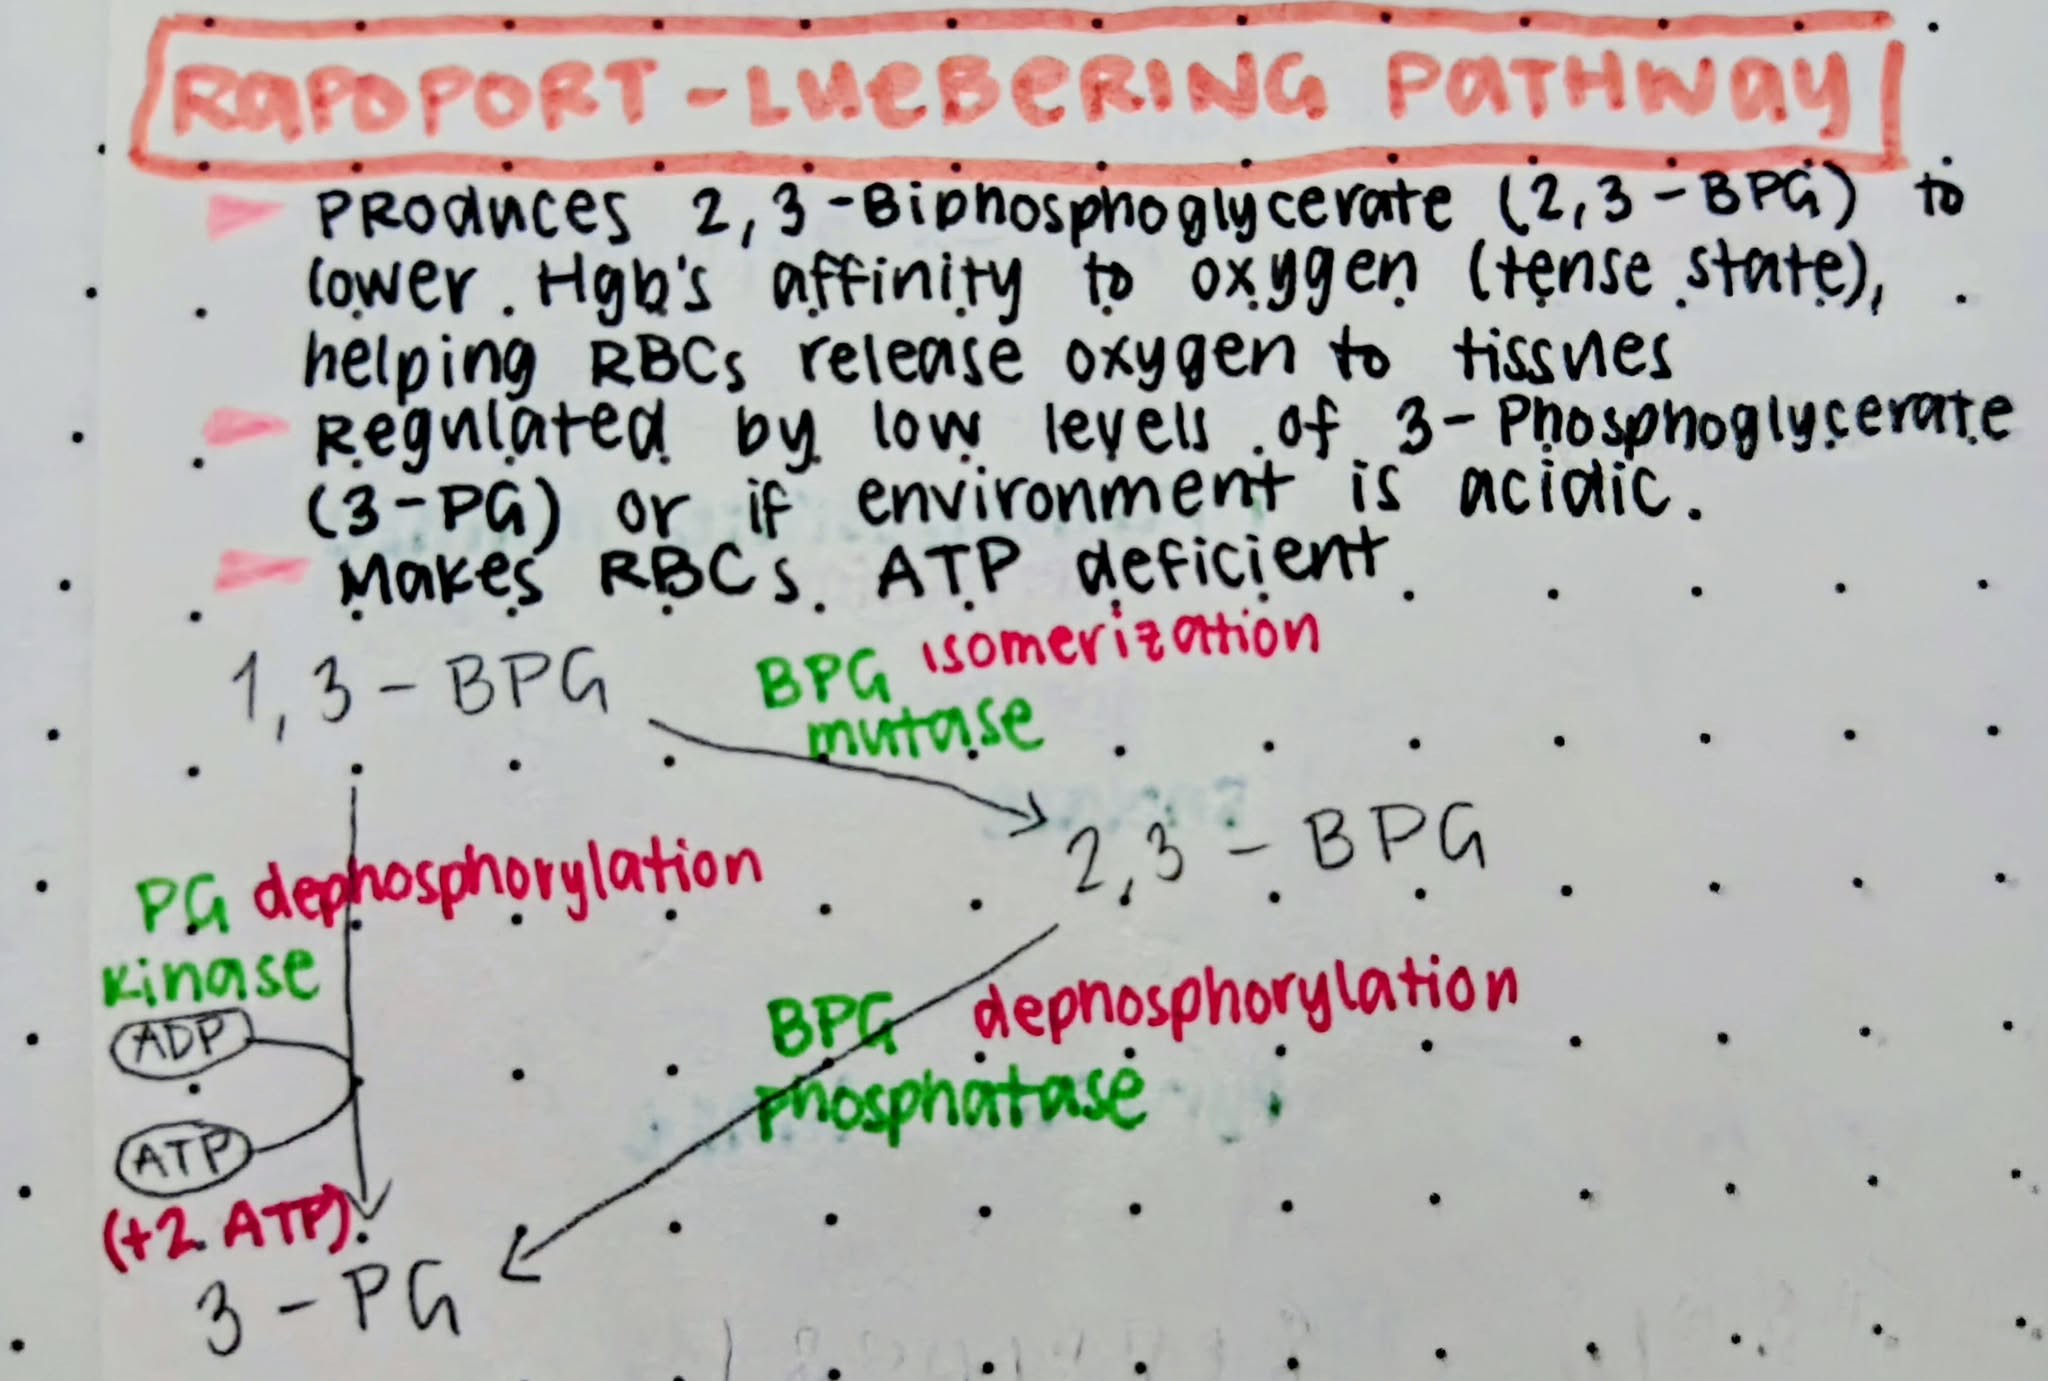 RAPOPORT-LUEBERING PATHWAY
Produces 2,3-Biphosphoglycerate (2,3-BPG) to
lower Hgb's affinity to oxygen (tense state),
helping RBCs release oxygen to tissues
Regulated by low levels of 3-Phosphoglycerate
(3-PG) or if environment is acidic.
Makes RBCs ATP deficient
1,3-BPG
BPG isomerization
mutase
2,3-BPG
PG dephosphorylation
kinase
ADP
BPG dephosphorylation
phosphatase
ATP
(+2 ATP)
3-PG